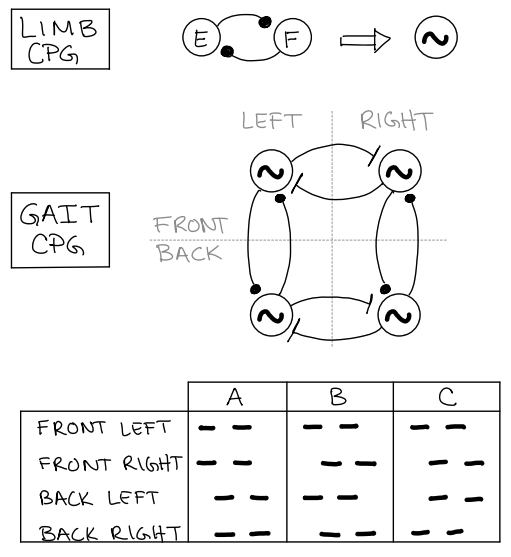 LIMB
CPG
E
F
~
LEFT
RIGHT
~
~
GAIT
CPG
FRONT
BACK
~
~
A
B
C
FRONT LEFT
FRONT RIGHT
BACK LEFT
BACK RIGHT